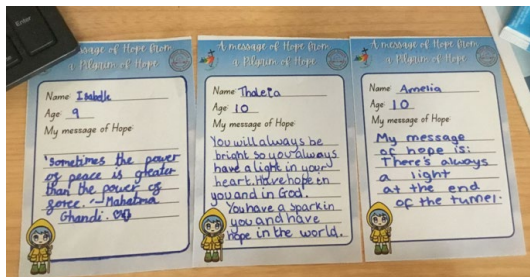 A message of Hope from
a Pilgrim of Hope
Name Isabelle
Age 9
My message of Hope:
"Sometimes the power
of peace is greater
than the power of
force." - Mahatma
Ghandi.
A message of Hope from
a Pilgrim of Hope
Name
Age 10
My message of Hope:
You will always be
bright so you always
have a light in your
heart. Have hope in
you and in God.
You have a spark in
you and have
hope in the world.
A message of Hope from
a Pilgrim of Hope
Name Amelia
Age 10
My message of Hope:
My message
of hope is:
There's always
a light
at the end
of the tunnel.
Enter